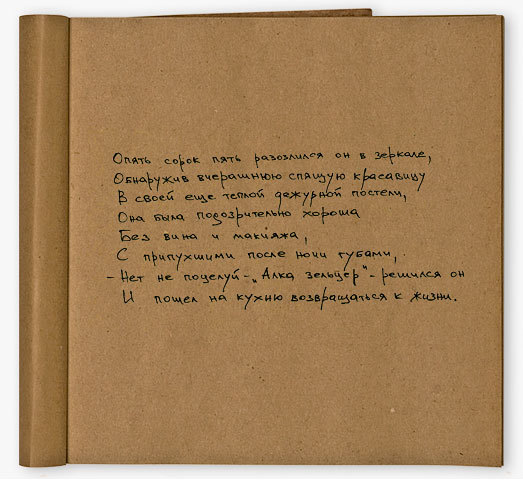 Опять сорок пять разозлился он в зеркале,
Обнаружив вчерашнюю спящую красавицу
В своей еще теплой дежурной постели,
Она была подозрительно хороша
Без вина и макияжа,
С припухшими после ночи губами,
- Нет не поцелуй - „Алка зельцер" - решился он
И пошел на кухню возвращаться к жизни.